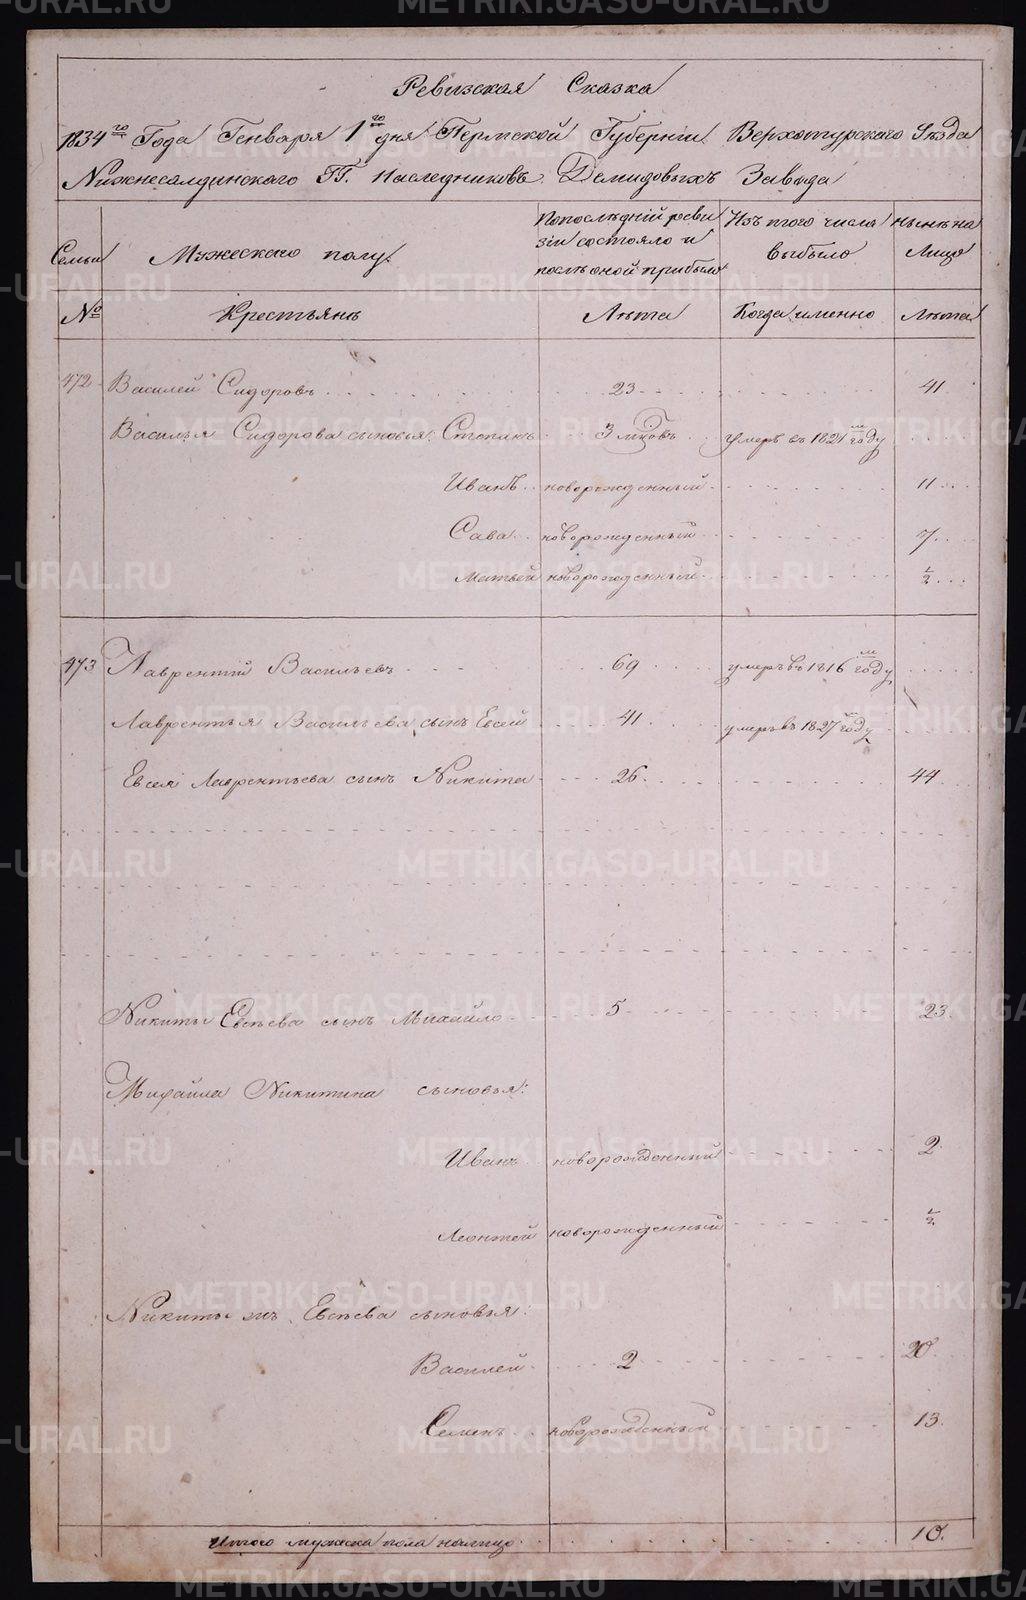 Ревизская Сказка
1834го Года Генваря 1го дня Пермской Губернiи Верхотурскаго Уѣзда
Нижнесалдинскаго ГГ. Наследниковъ Демидовыхъ Завода
Семьи
Мужескаго полу
Попослѣднiй реви
зiи состояло и
послѣ оной прибыло
Изъ того числа
выбыло
Нынѣ на
Лицо
№
Крестьянъ
Лѣта
Когда именно
Лѣта
472 Василей Сидоровъ 23 41
Василья Сидорова сыновья: Степанъ 3 мѣсовъ умеръ въ 1821м году
Иванъ новорожденный 11
Сава новорожденный 7
Матвей новорожденный 1/2
473 Лаврентiй Васильевъ 69 умеръ въ 1816м году
Лаврентья Васильева сынъ Евсей 41 умеръ въ 1827м году
Евсея Лаврентьева сынъ Никита 26 44
Никиты Евсѣева сынъ Михайло 5 23
Михайла Никитина сыновья:
Иванъ новорожденный 2
Леонтей новорожденный 1/2
Никиты Евсѣева сыновья:
Василей 2 20
Семенъ новорожденный 13
Итого мужска пола налицо 10.
METRIKI.GASO-URAL.RU